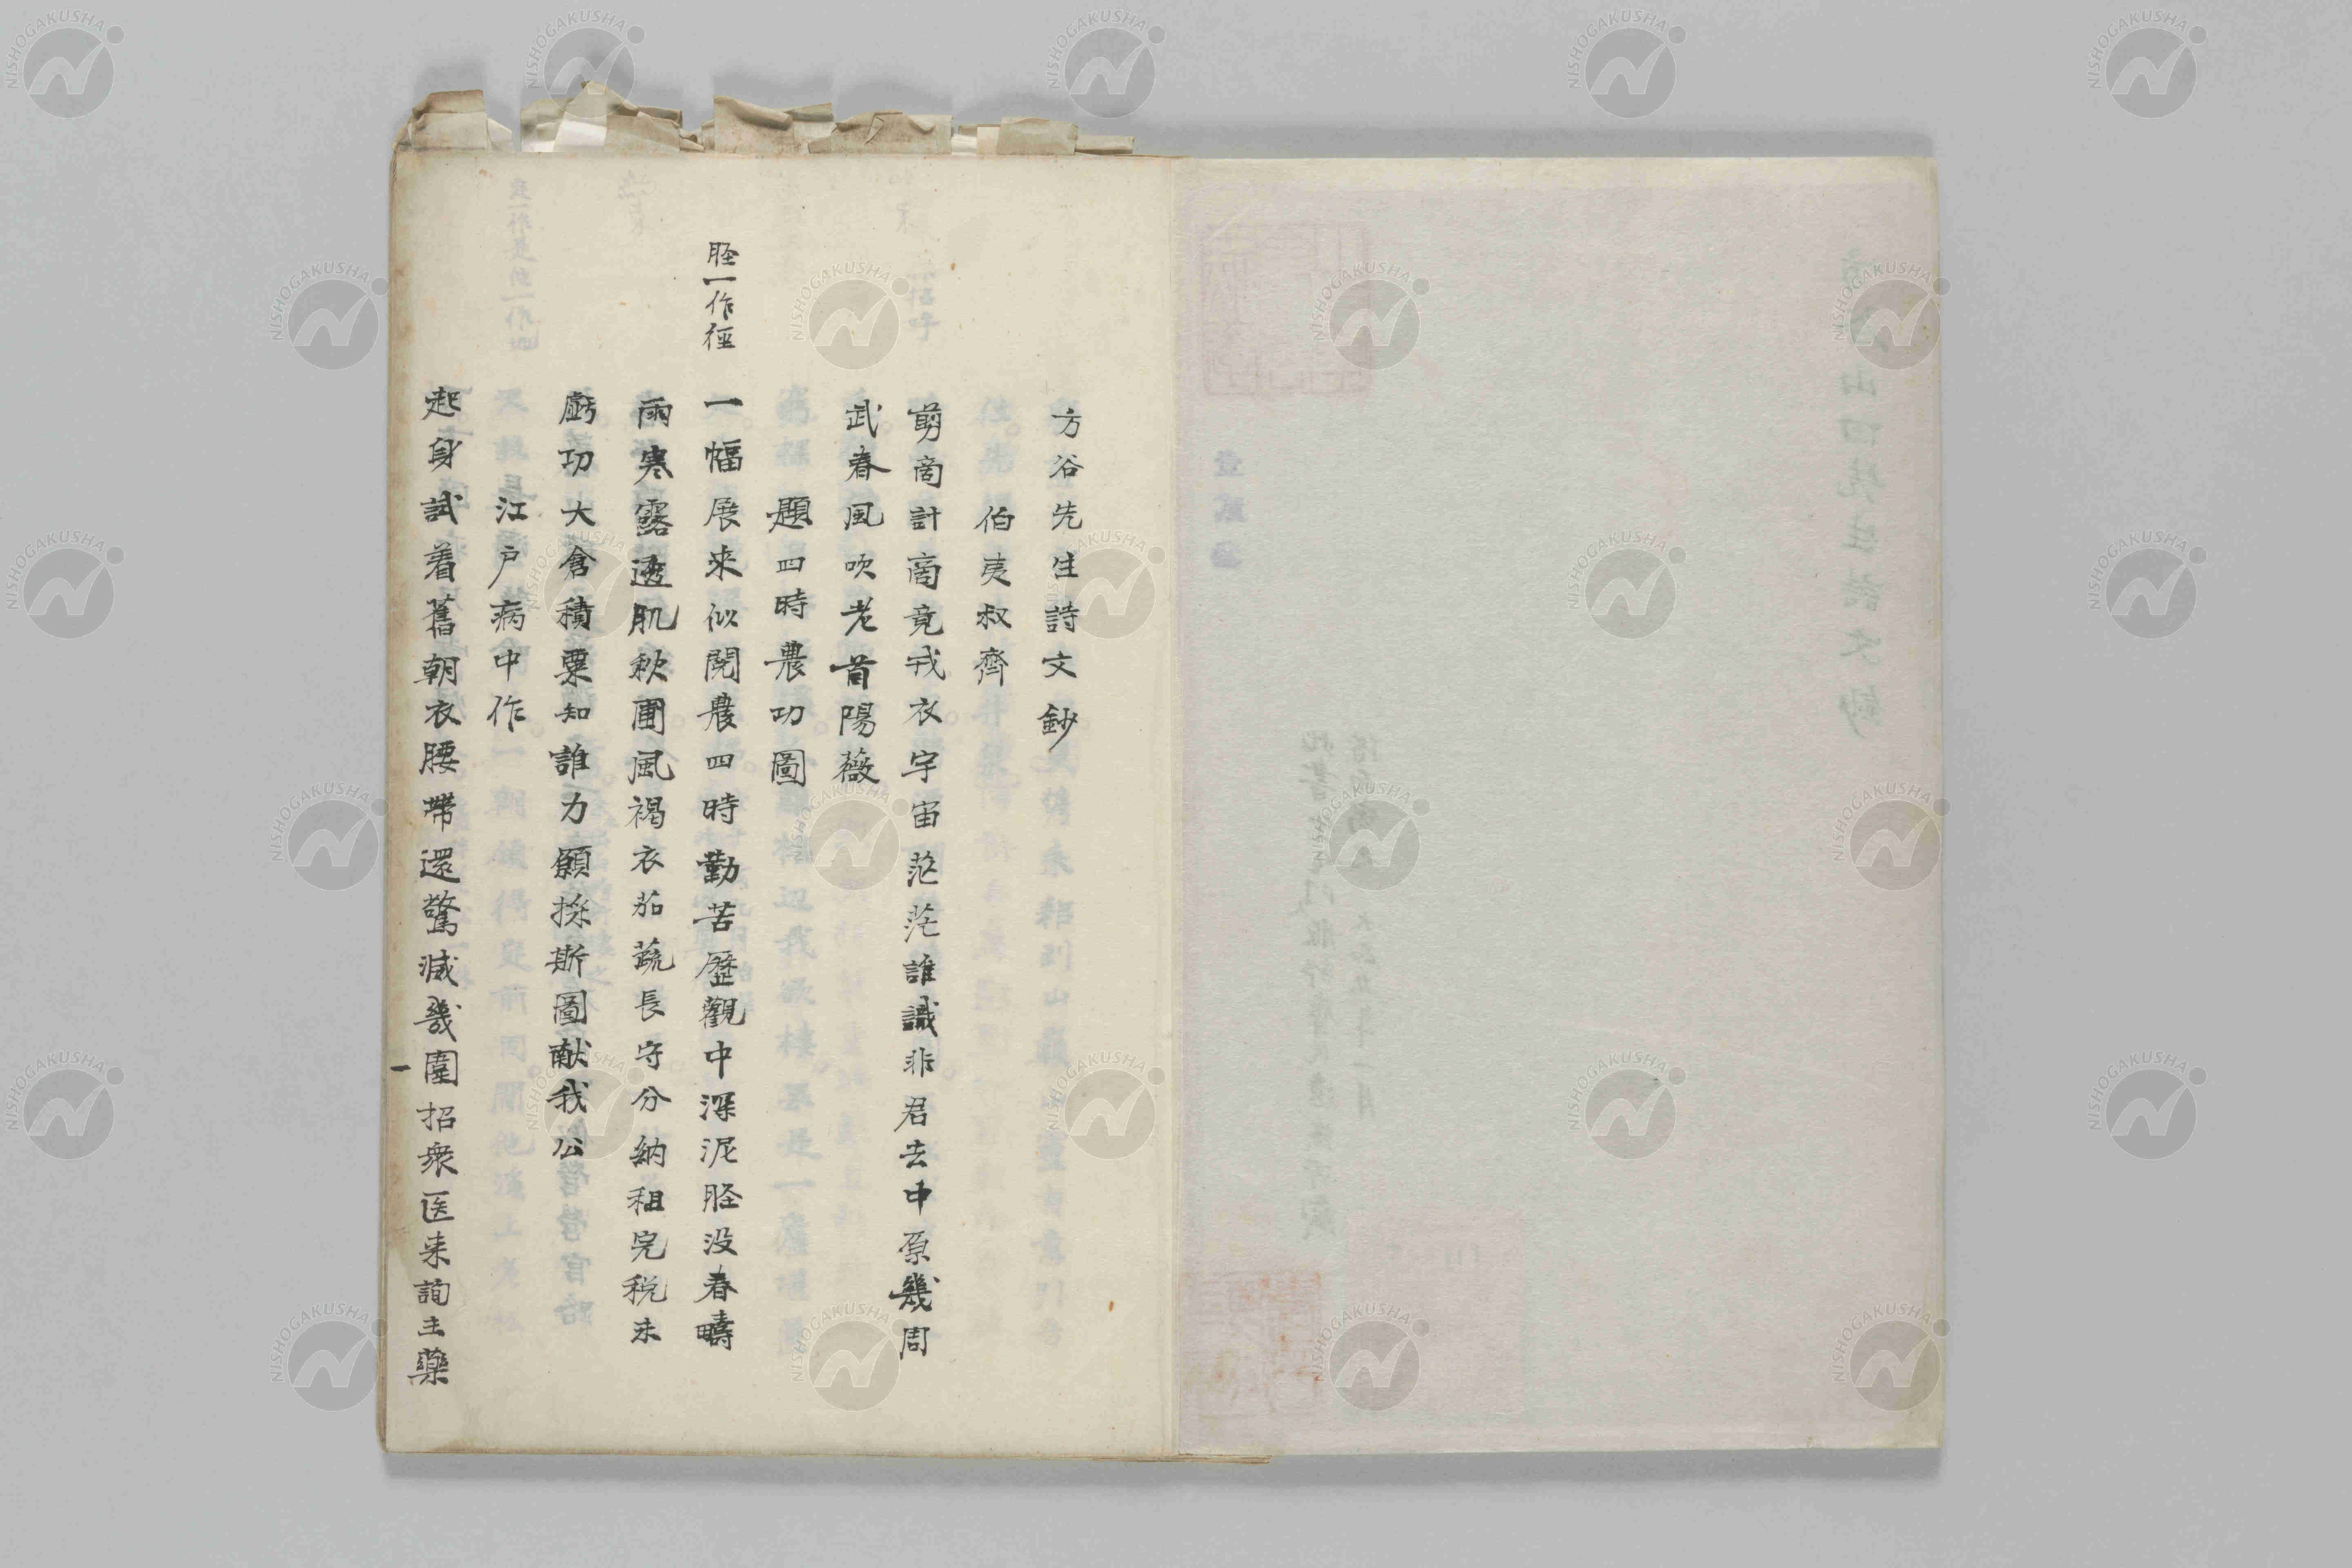 方谷先生詩文鈔
伯夷叔齊
剪商計商竟戎衣宇宙茫茫誰識非君去中原幾周
武春風吹老首陽薇
題四時農功圖
脛一作徑
一幅展来似閲農四時勤苦歴觀中深泥脛没春疇
雨寒露透肌秋圃風褐衣茄蔬長守分納租完税未
虧功大倉積粟知誰力願採斯圖献我公
江戸病中作
起身試着舊朝衣腰帶還驚減幾圍招衆医来詢主藥
一
NISHOGAKUSHA